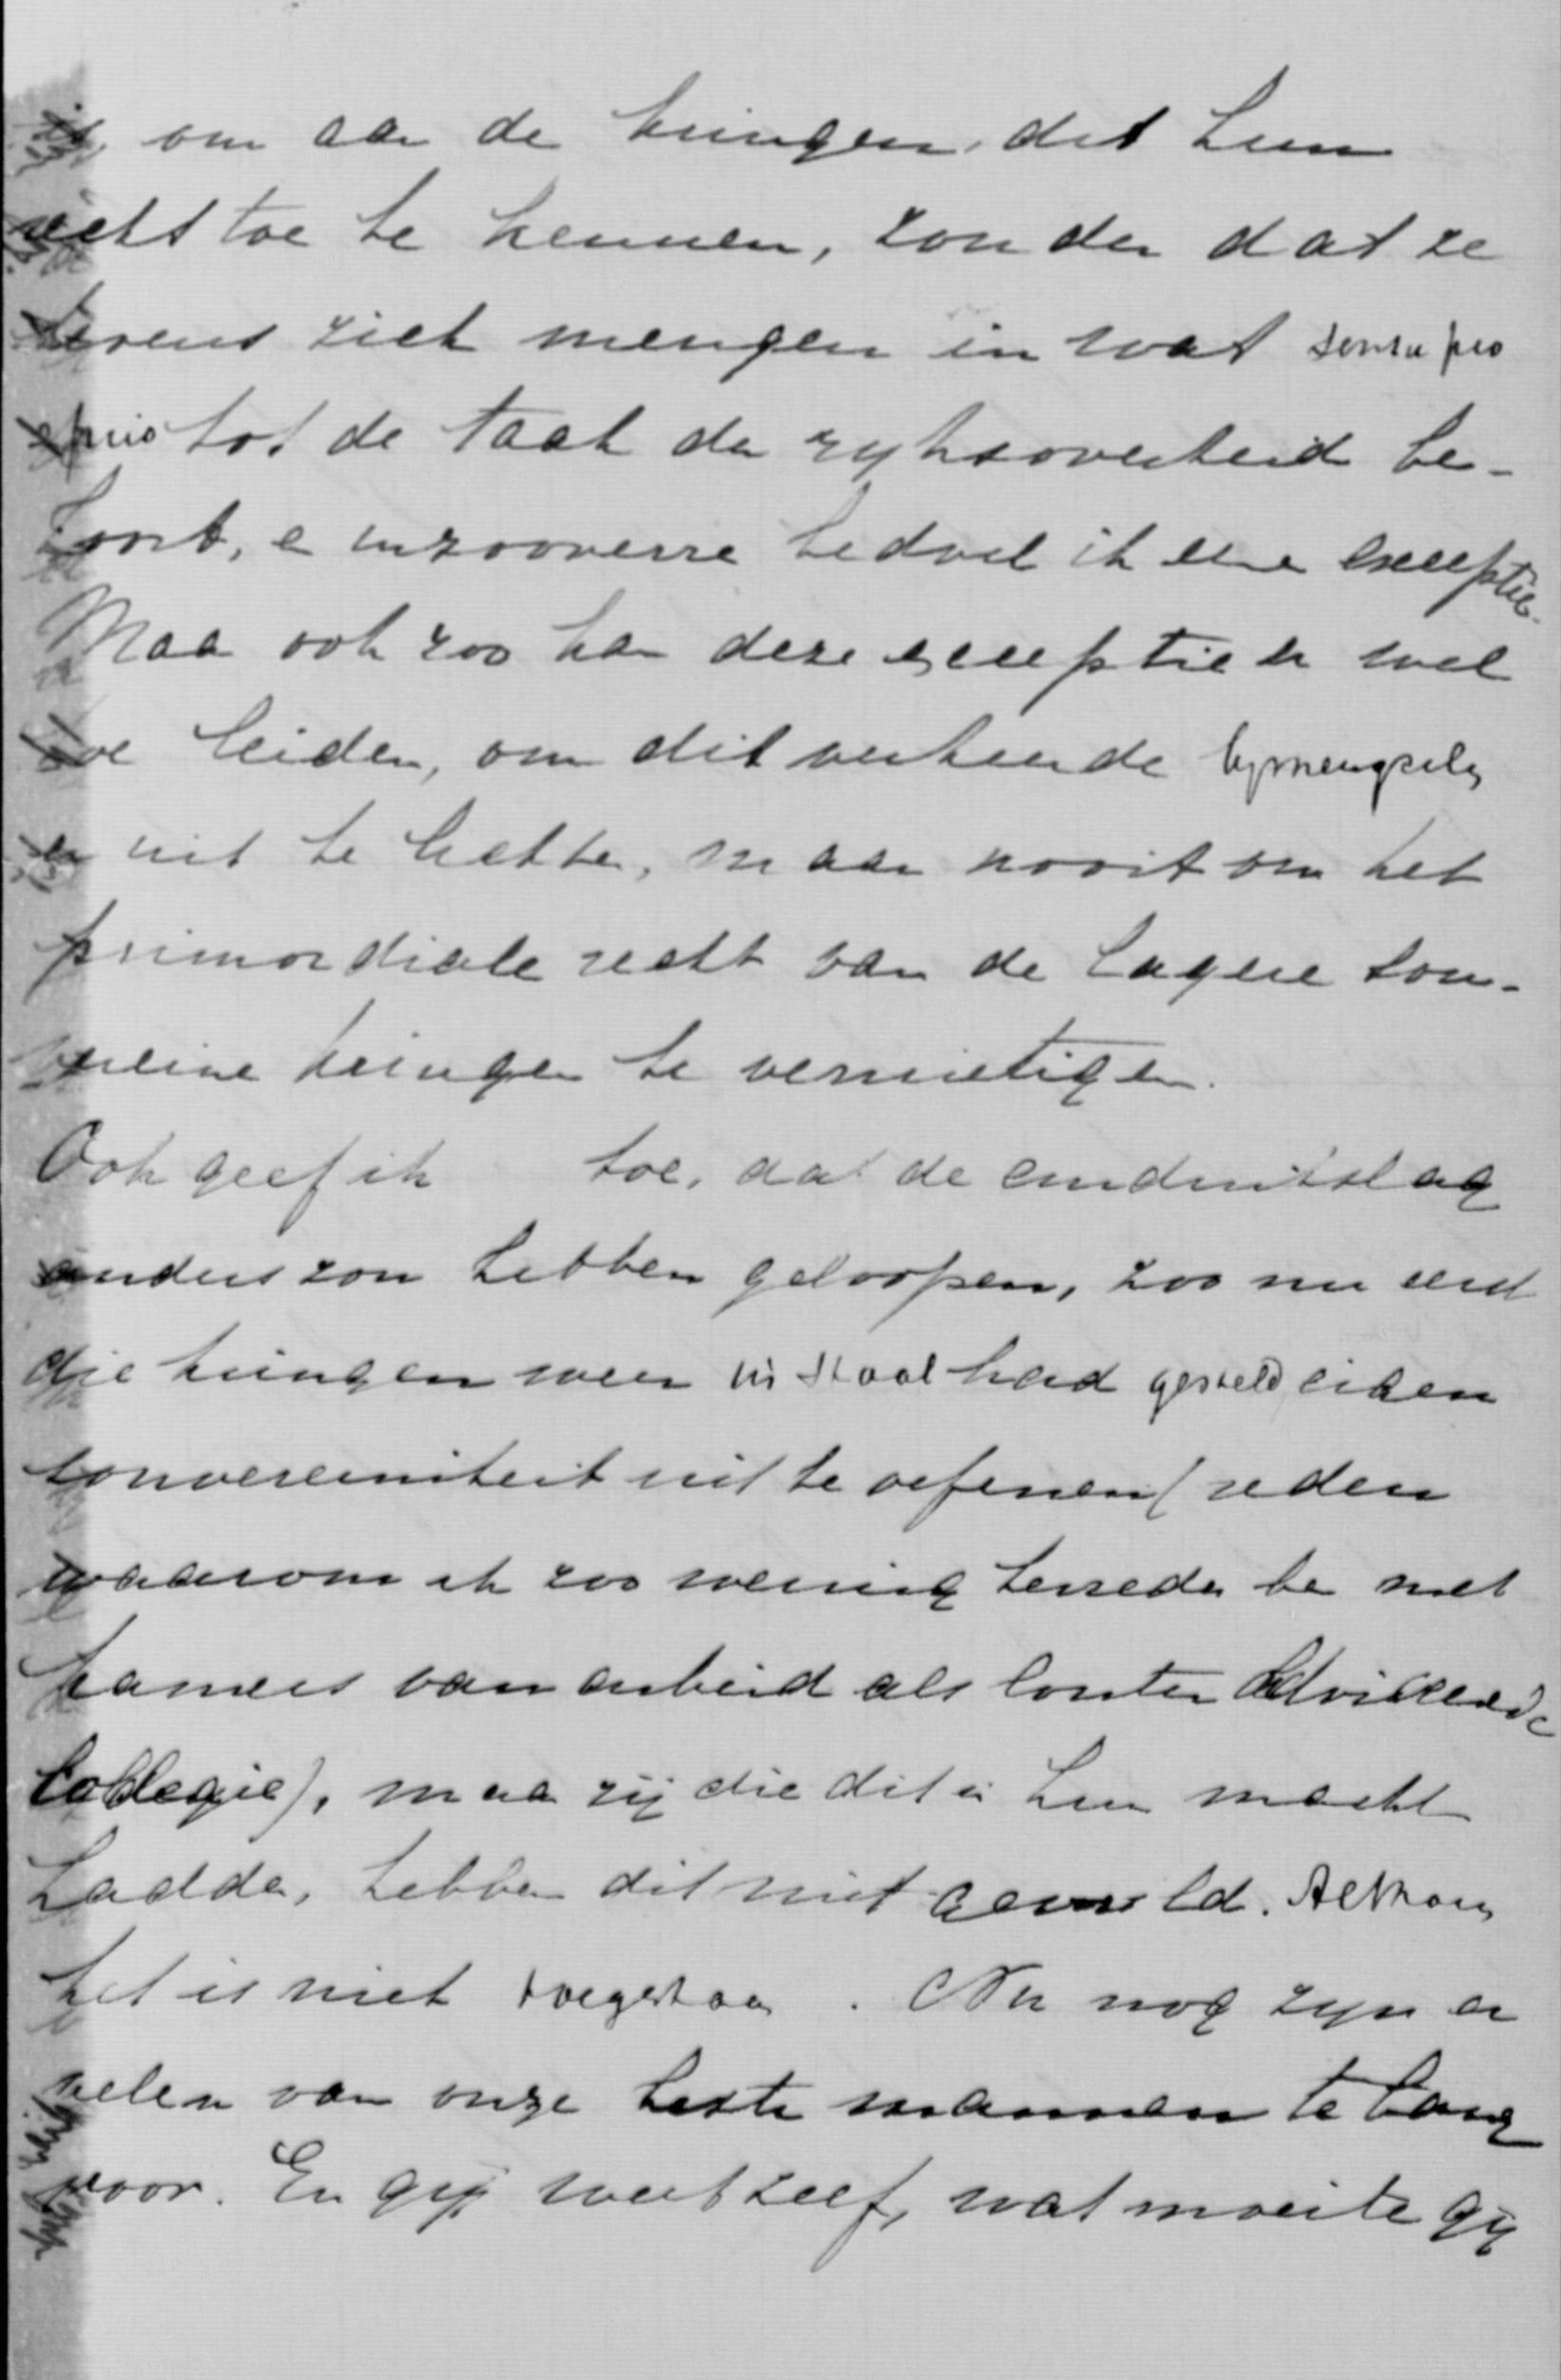 is, om aan de kringen dit hun
recht toe te kennen, zonder dat ze
tevens zich mengen in wat sensu pro
prio tot de taak der ryksoverheid be-
hoort, en inzooverre bedoel ik eene exceptie.
Maar ook zoo kan deze exceptie er wel
toe leiden, om dit verkeerde bymengsel
er uit te lichten, maar nooit om het
primordiale recht van de lagere sou-
vereine kringen te vernietigen.
Ook geef ik toe, dat de einduitslag
anders zou hebben geloopen, zoo men eerst
die kringen weer in staat had gesteld eigen
souvereiniteit uit te oefenen (reden
waarom ik zoo weinig tevreden ben met
kamers van arbeid als louter adviseerende
collegie), maar zij die dit in hun macht
hadden, hebben dit niet gewild. Althans
het is niet toegestaan. Nu nog zyn er
velen van onze beste mannen te bang
voor. En gij weet zelf, wat moeite gij